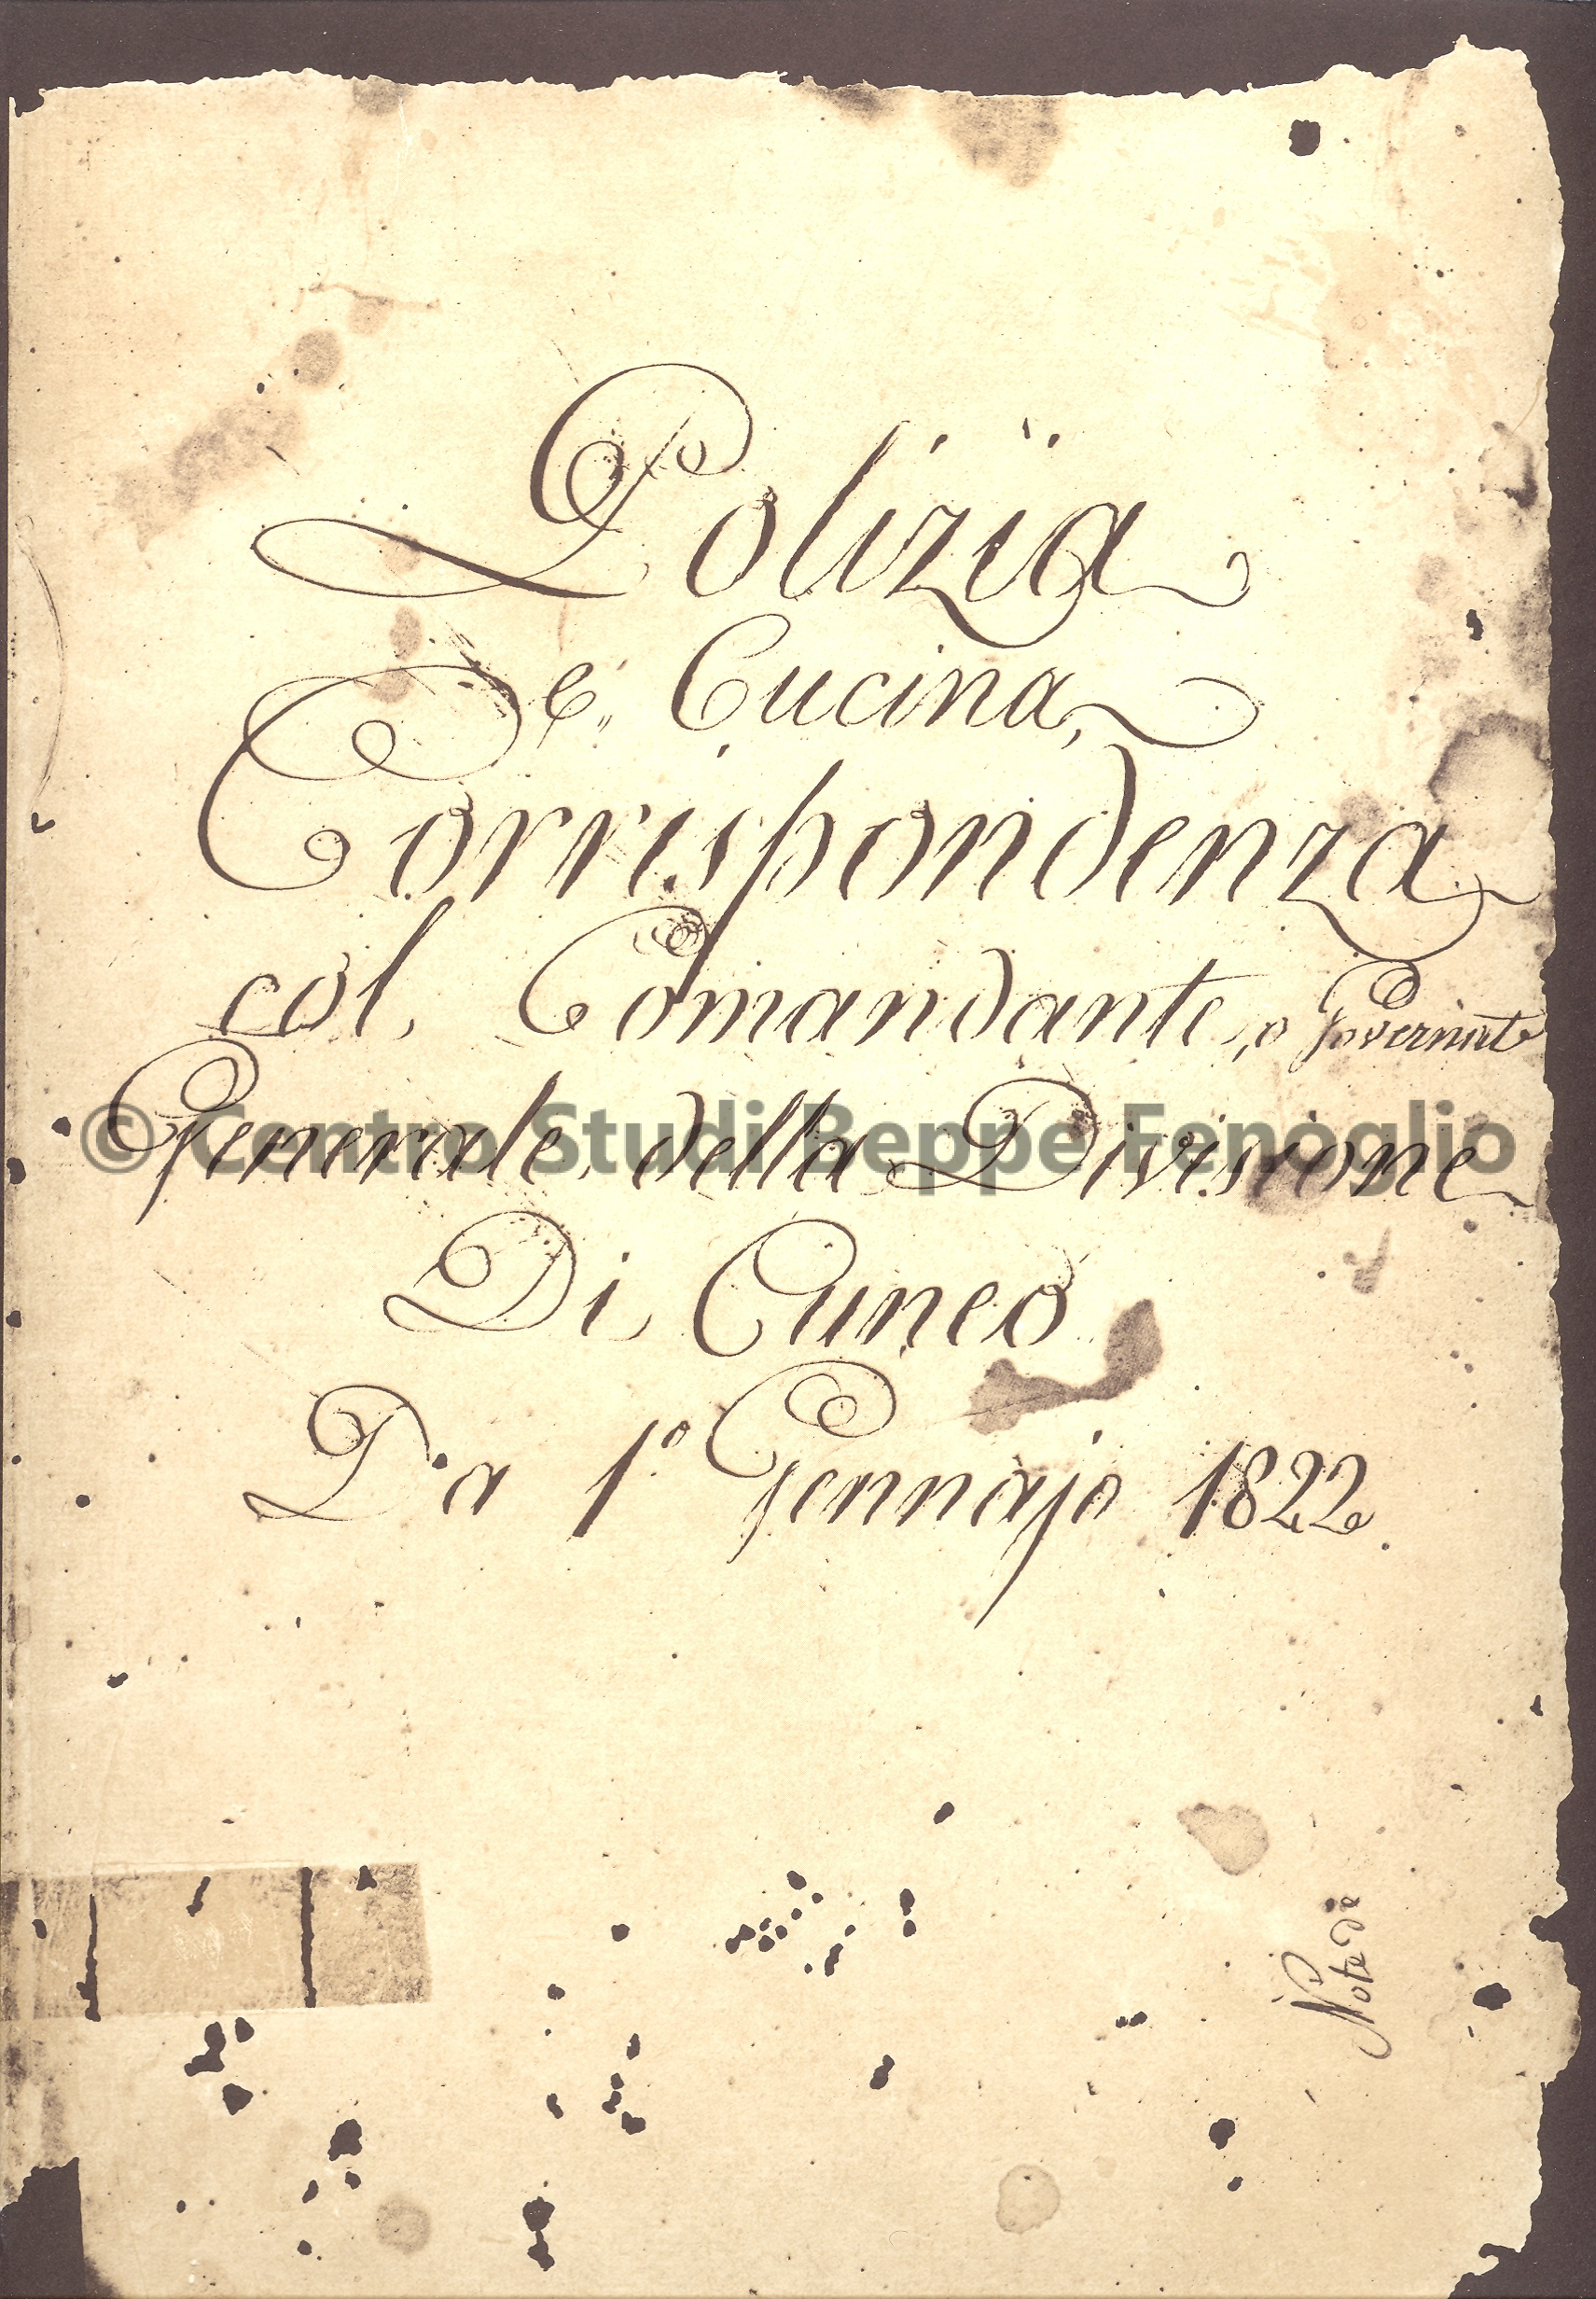 Polizïa
e, Cucina,
Corrispondenza
col, Comandante, o Governat
Generale, della Divisione
Di Cuneo
Da 1.º Gennajo 1822.
© Centro Studi Beppe Fenoglio
Note di